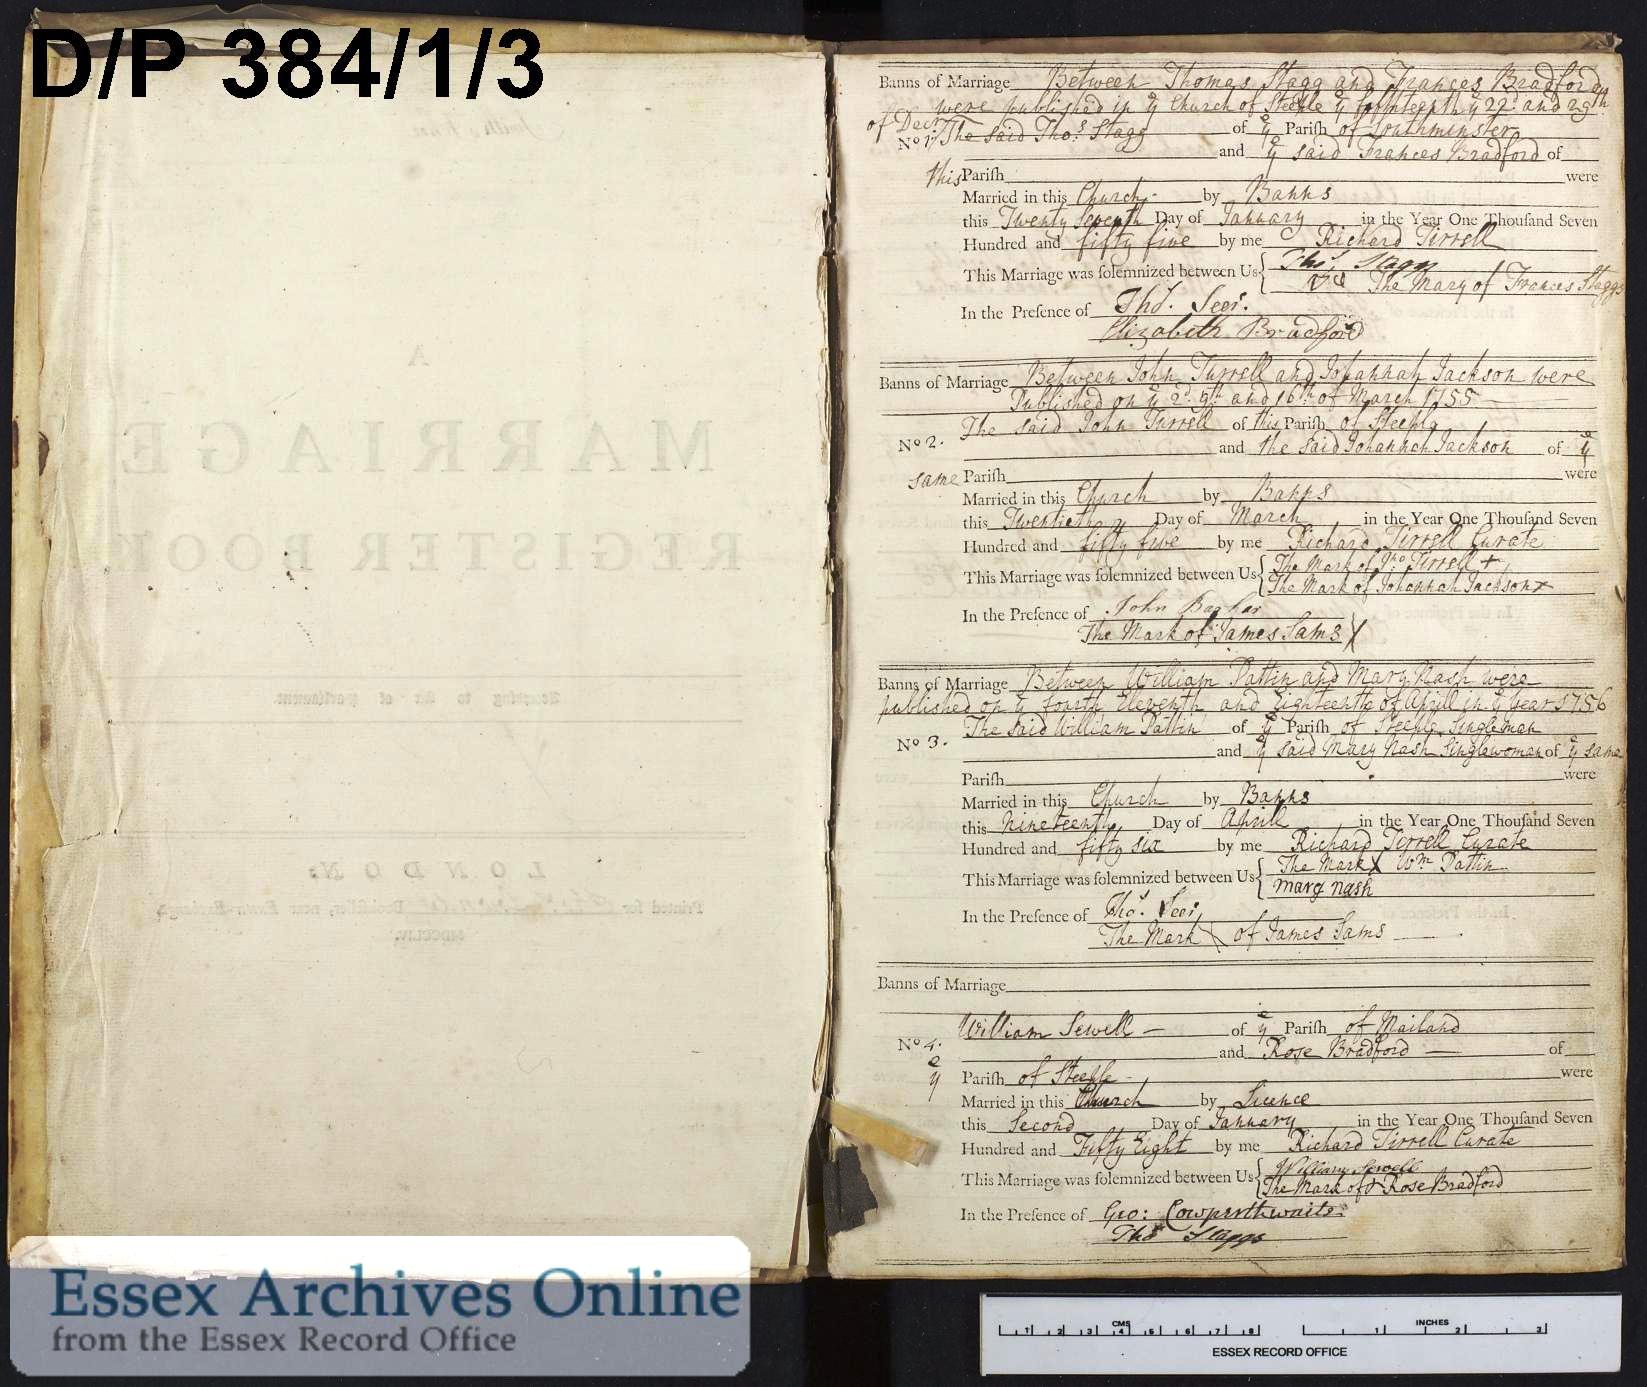 D/P 384/1/3
A
MARRIAGE
REGISTER BOOK
According to Act of Parliament
LONDON:
Printed for
Bookseller, near
MDCCLIV.
Banns of Marriage Between Thomas Stagg and Frances Bradford
were published in ye Church of Steeple ye fifteenth ye 22d and 29th
of Decr
No 1 The said Thos Stagg of ye Parish of Southminster
and ye said Frances Bradford of
this Parish were
Married in this Church by Banns
this Twenty Seventh Day of January in the Year One Thousand Seven
Hundred and fifty five by me Richard Tirrell
This Marriage was solemnized between Us { Thos. Stagg
The Mark of Frances Staggs
In the Presence of Thos. Seer.
Elizabeth Bradford
Banns of Marriage Between John Turrell and Johannah Jackson were
Published on ye 2d 9th and 16th of March 1755
The said John Turrell of this Parish of Steeple
No 2. and the said Johannah Jackson of ye
same Parish were
Married in this Church by Banns
this Twentieth Day of March in the Year One Thousand Seven
Hundred and fifty five by me Richard Tirrell Curate
This Marriage was solemnized between Us { The Mark of Jno Tirrell +
The Mark of Johannah Jackson x
In the Presence of John
The Mark of James Sams X
Banns of Marriage Between William Pattin and Mary Nash were
published on ye fourth Eleventh and Eighteenth of Aprill in ye Year 1756
The said William Pattin of ye Parish of Steeple Singleman
No 3. and ye said Mary Nash Singlewoman of ye same
Parish were
Married in this Church by Banns
this Nineteenth Day of Aprill in the Year One Thousand Seven
Hundred and fifty six by me Richard Tirrell Curate
This Marriage was solemnized between Us { The Mark X Wm Pattin
mary nash
In the Presence of Thos. Seer
The Mark X of James Sams
Banns of Marriage
William Sewell of ye Parish of Mailand
No 4. and Rose Bradford of
ye Parish of Steeple were
Married in this Church by Licence
this Second Day of January in the Year One Thousand Seven
Hundred and Fifty Eight by me Richard Tirrell Curate
This Marriage was solemnized between Us { William Sewell
The Mark of + Rose Bradford
In the Presence of Geo: Cowperthwaite
Thos Staggs
Essex Archives Online
from the Essex Record Office
CMS
1 2 3 4 5 6 7 8
INCHES
1 2 3
ESSEX RECORD OFFICE